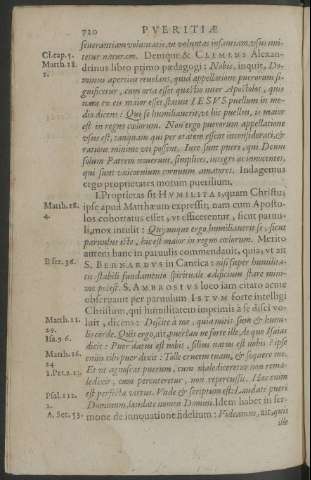 720 PVERITIÆ
seuerantiam voluntatis, an voluntas infantiam, vsus imi-
tetur naturam. Denique & CLEMENS Alexan-
Cl. cap. 5.
drinus libro primo pædagogi: Nobis, inquit, Do-
Matth. 18.
2.
minus apertius reuelans, quid appellatione puerorum si-
gnificetur, cum orta esset quæstio inter Apostolos, quis
nam ex eis maior esset, statuit IESVS puellum in me-
dio dicens: Qui se humiliauerit, vt hic puellus, is maior
est in regno cælorum. Non ergo puerorum appellatione
vsus est, tanquam qui per ætatem essent inconsiderati, &
ratione minime vti possent. Iure sunt pueri, qui Deum
solum Patrem nouerunt, simplices, integri ac innocentes,
qui sunt vnicornium cornuum amatores. Indagemus
ergo proprietates motum puersilium.
I. Proprietas sit HVMILITAS, quam Christus
Matth. 18.
4.
ipse apud Matthæum expressit; nam cum Aposto-
los cohortatus esset, vt efficerentur, sicut paruu-
li, mox intulit: Quicunque ergo humiliauerit se, sicut
paruulus iste, hic est maior in regno cælorum. Merito
autem hanc in paruulis commendauit, quia, vt ait
B. ser. 36.
S. BERNARDVS in Cantica: nisi super humilita-
tis stabili fundamento spirituale ædificium stare mini-
me potest. S. AMBROSIVS loco iam citato acute
obseruauit per paruulum ISTVM forte intelligi
Christum, qui humilitatem imprimis à se disci vo-
Matth. 11.
29.
luit, dicens: Discite à me, quia mitis sum & humi-
lis corde. Quis ergo, ait, pueritas ne forte, de quo Isaias
Isa. 9. 6.
dicit: Puer natus est nobis, filius natus est nobis? ipse
Matth. 16.
24.
enim tibi puer dicit: Tolle crucem tuam, & sequere me.
Et vt agnoscas puerum, cum malediceretur non rema-
1. Pet. 2. 23.
ledixit, cum percuteretur, non repercussit. Hæc enim
est perfecta virtus. Vnde & scriptum est: Laudate pueri
Psal. 112.
1.
Dominum, laudate nomen Domini. Idem habet in ser-
A. Ser. 53.
mone de
fidelium: Videamus, ait, quis